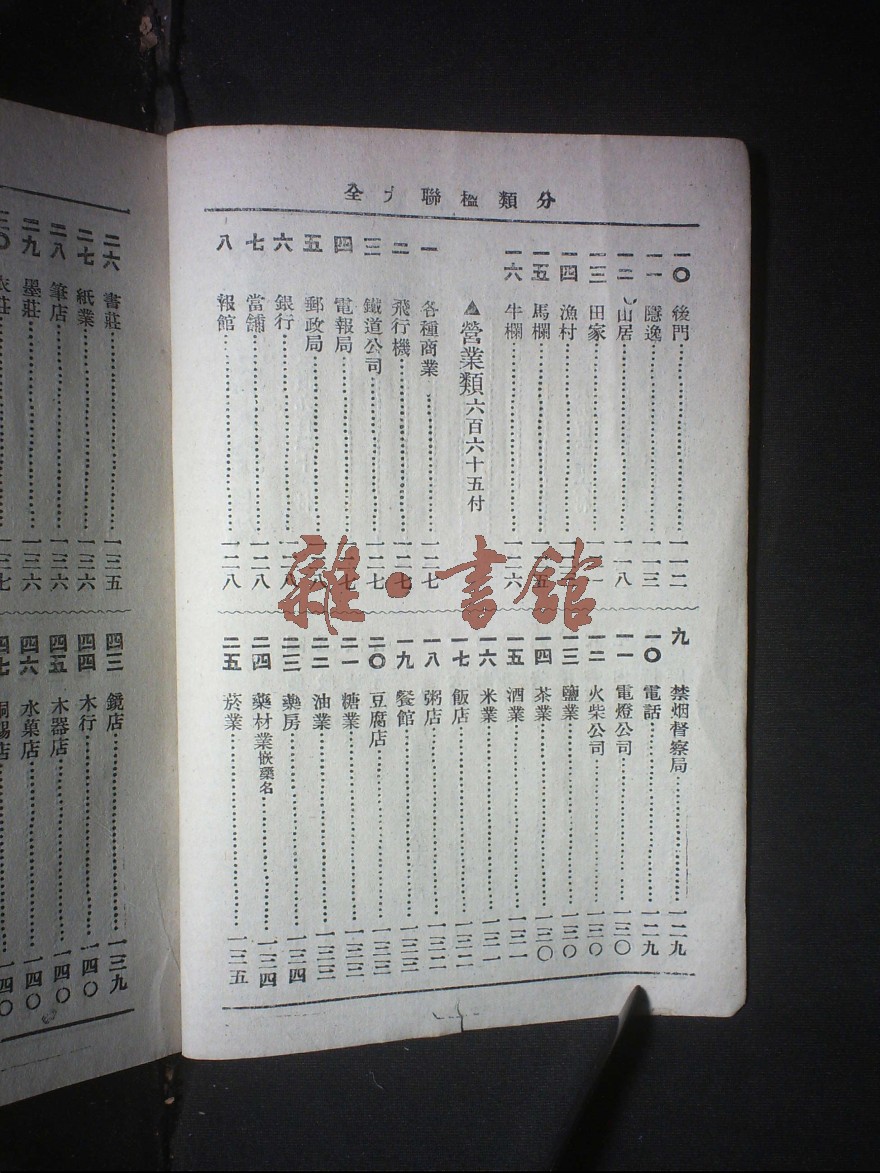 分類楹聯大全
一〇 後門 一一二
一一 隱逸 一一三
一二 山居 一一八
一三 田家
一四 漁村
一五 馬欄
一六 牛欄 一二六
▲營業類 六百六十五付
一 各種商業 一二七
二 飛行機 一二七
三 鐵道公司 一二七
四 電報局
五 郵政局
六 銀行
七 當舖 一二八
八 報館 一二八
九 禁烟督察局 一二九
一〇 電話 一二九
一一 電燈公司 一三〇
一二 火柴公司 一三〇
一三 鹽業 一三〇
一四 茶業 一三〇
一五 酒業 一三一
一六 米業 一三一
一七 飯店 一三二
一八 粥店 一三二
一九 餐館 一三三
二〇 豆腐店 一三三
二一 糖業 一三三
二二 油業 一三三
二三 藥房 一三四
二四 藥材業嵌藥名 一三四
二五 菸業 一三五
二六 書莊 一三五
二七 紙業 一三六
二八 筆店 一三六
二九 墨莊 一三六
三〇 衣莊 一三七
四三 鏡店 一三九
四四 木行 一四〇
四五 木器店 一四〇
四六 水菓店 一四〇
四七 錫店 一四〇
雜·書館